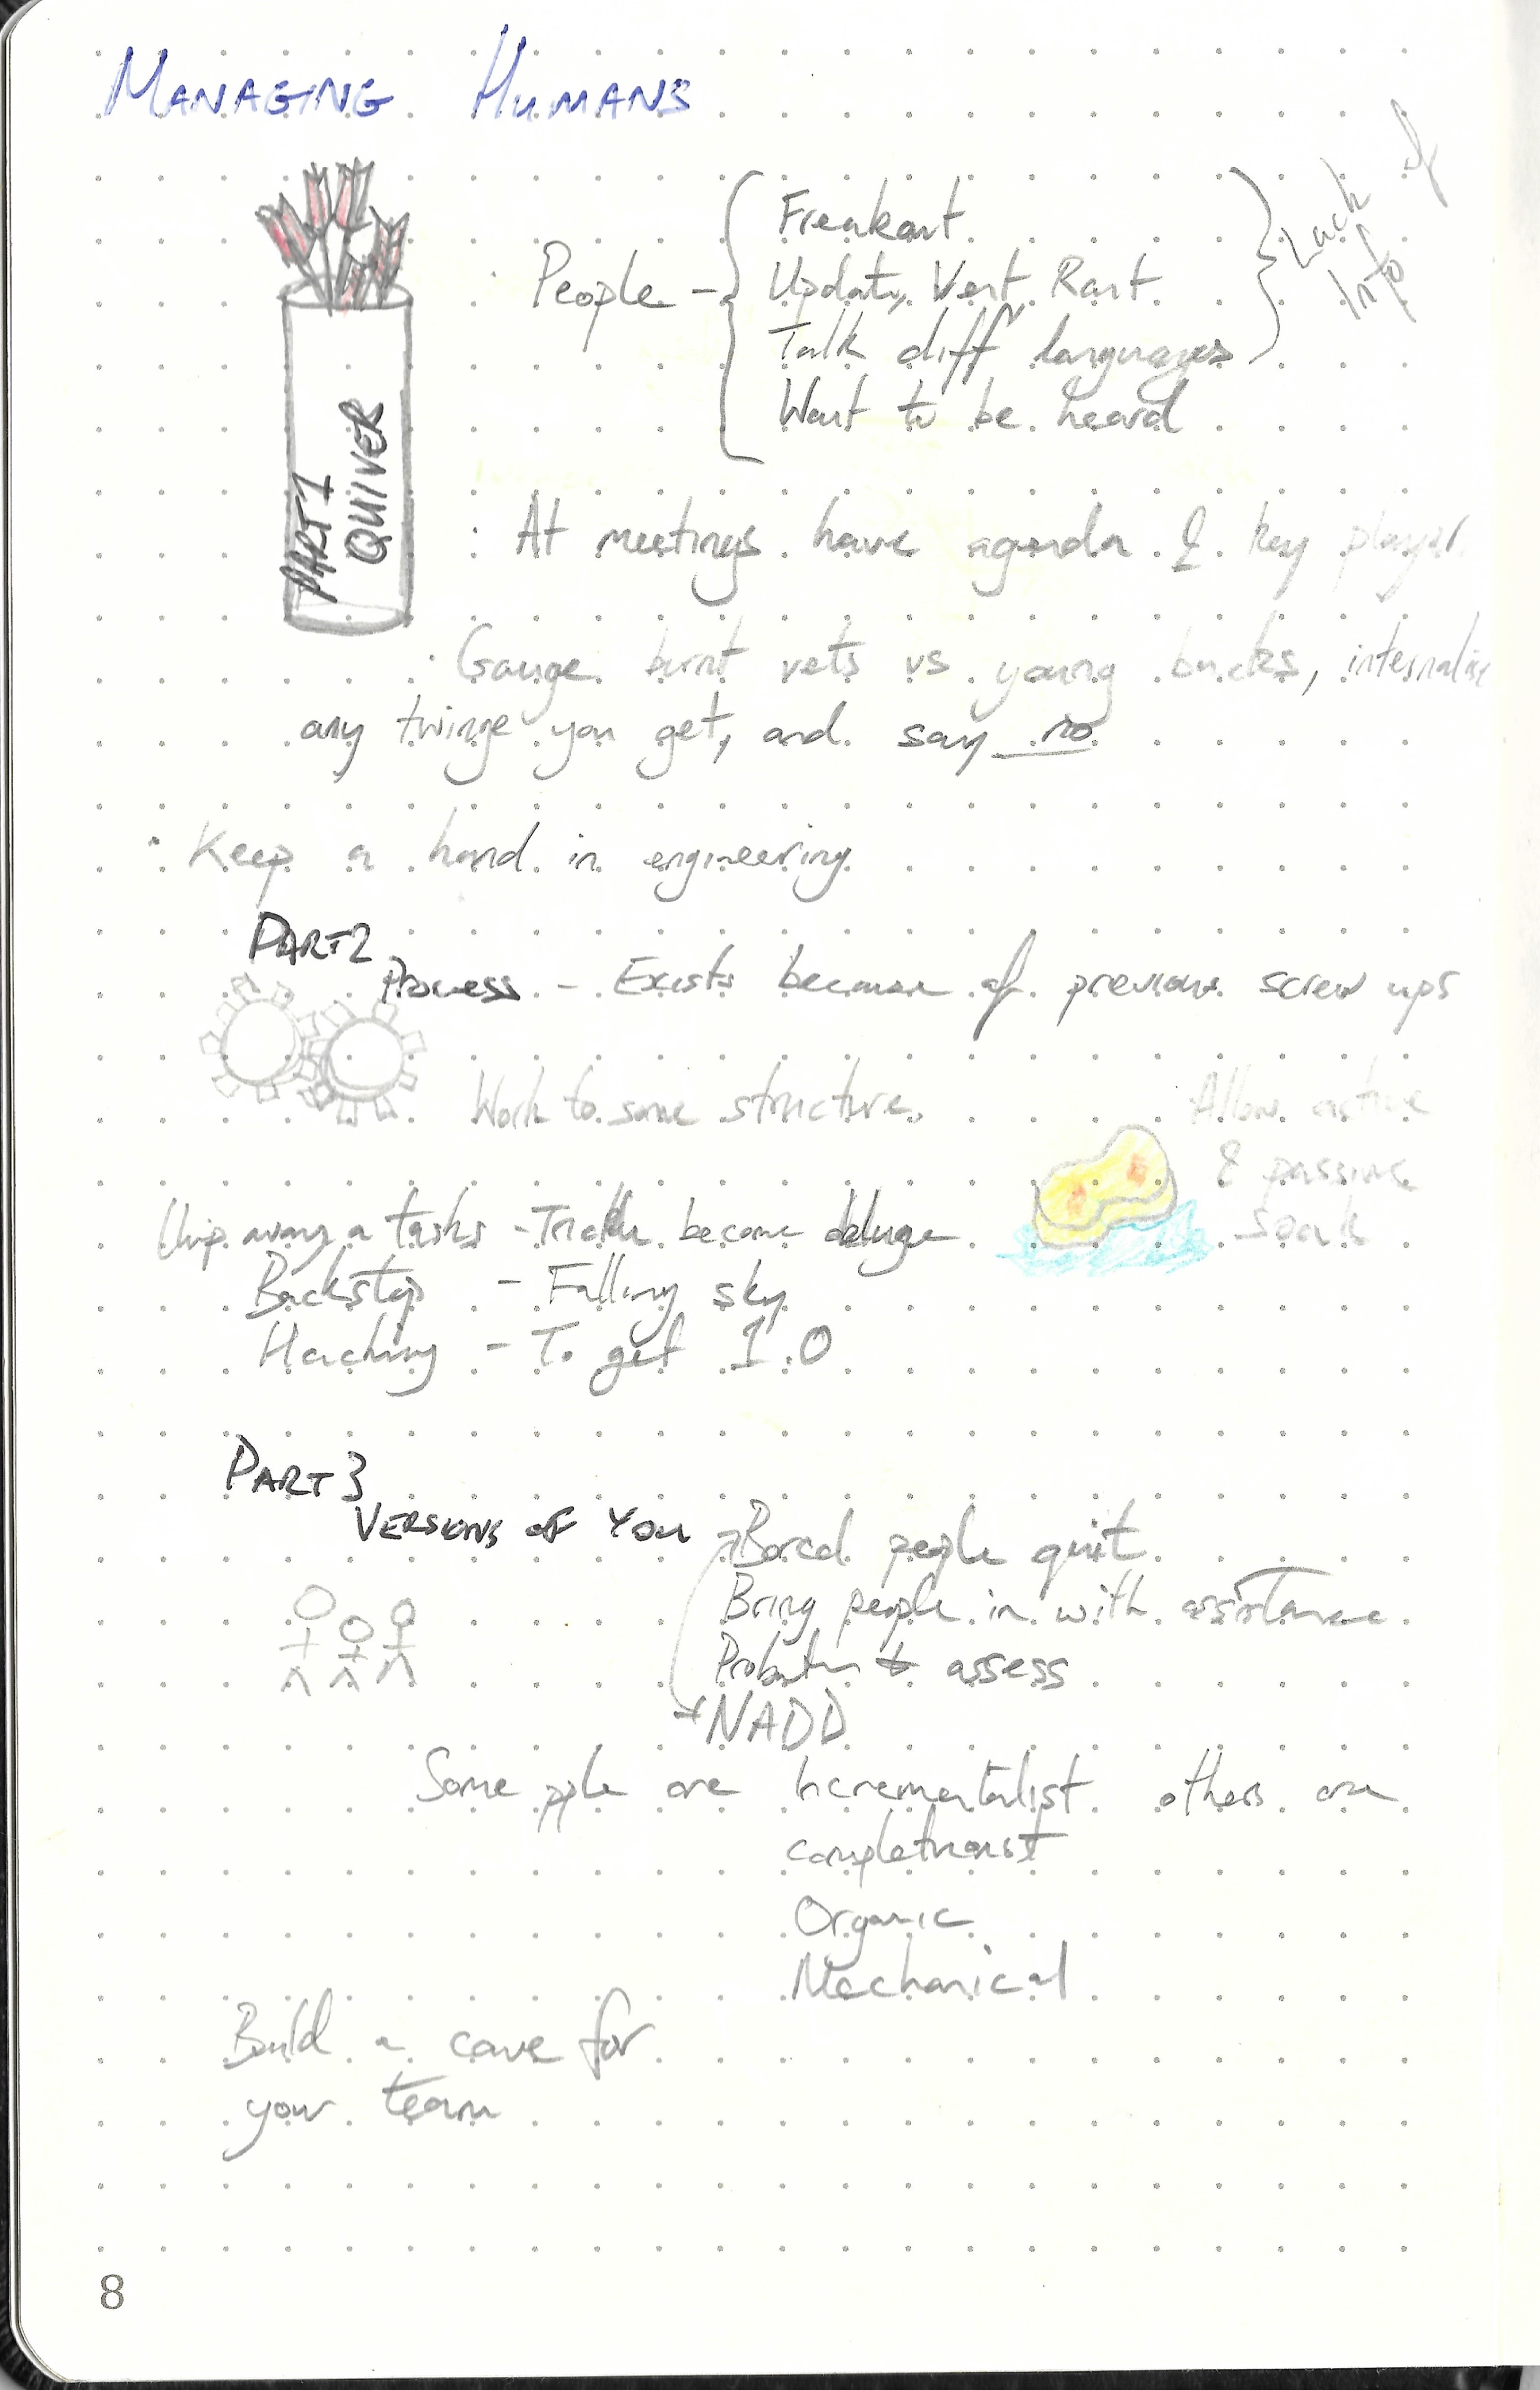 MANAGING HUMANS
PART 1
QUIVER
People -
Freakout
Update, Vent, Rant
Talk diff languages
Want to be heard
Lack of
Info
At meetings have agenda & key player
Gauge burnt vets vs young bucks, internalise
any twinge you get, and say no
Keep a hand in engineering
PART 2
Process - Exists because of previous screw ups
Work to some structure.
Allow active
& passive
soak
Chip away a tasks - Trickle become deluge
Backstop - Falling sky
Hacking - To get 1.0
PART 3
VERSIONS OF YOU
Bored people quit
Bring people in with assistance
Probation to assess
NADD
Some pple are Incrementalist others are
completionist
Organic
Mechanical
Build a cave for
your team
8